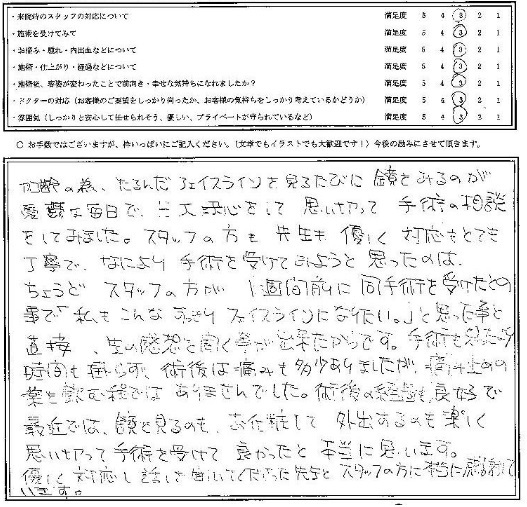 ・来院時のスタッフの対応について 満足度 5 4 3 2 1
・施術を受けてみて 満足度 5 4 3 2 1
・お痛み・腫れ・内出血などについて 満足度 5 4 3 2 1
・施術・仕上がり・経過などについて 満足度 5 4 3 2 1
・施術後、容姿が変わったことで前向き・幸せな気持ちになれましたか？ 満足度 5 4 3 2 1
・ドクターの対応（お客様のご要望をしっかり伺ったか、お客様の気持ちをしっかり考えているかどうか） 満足度 5 4 3 2 1
・雰囲気（しっかりと安心して任せられそう、優しい、プライベートが守られているなど） 満足度 5 4 3 2 1
○ お手数ではございますが、枠いっぱいにご記入ください。（文章でもイラストでも大歓迎です！）今後の励みにさせて頂きます。
加齢の為、たるんだフェイスラインを見るたびに 鏡をみるのが
憂鬱な毎日で、一大決心をして 思い切って 手術の相談
をしてみました。スタッフの方も 先生も 優しく 対応もとても
丁寧で、なにより 手術を受けてみようと 思ったのは、
ちょうど スタッフの方が 1週間前に 同手術を受けたとの
事で「私もこんな すっきり フェイスラインになりたい。」と思った事と
直接、生の感想を聞く事が出来たからです。手術も
時間も 術後は痛みも多少ありましたが、痛み止めの
薬を飲む程では ありませんでした。術後の経過も 良好で
最近では、鏡を見るのも、お化粧して 外出するのも楽しく
思い切って手術を受けて 良かったと 本当に思います。
優しく 対応し 話しを聞いてくださった先生と スタッフの方に本当に感謝して
います。